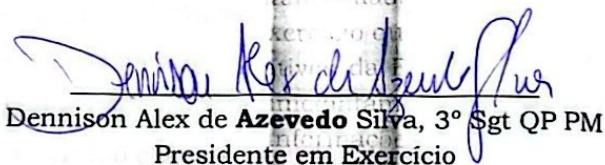 Dennison Alex de Azevedo Silva
Dennison Alex de Azevedo Silva, 3º Sgt QP PM
Presidente em Exercício